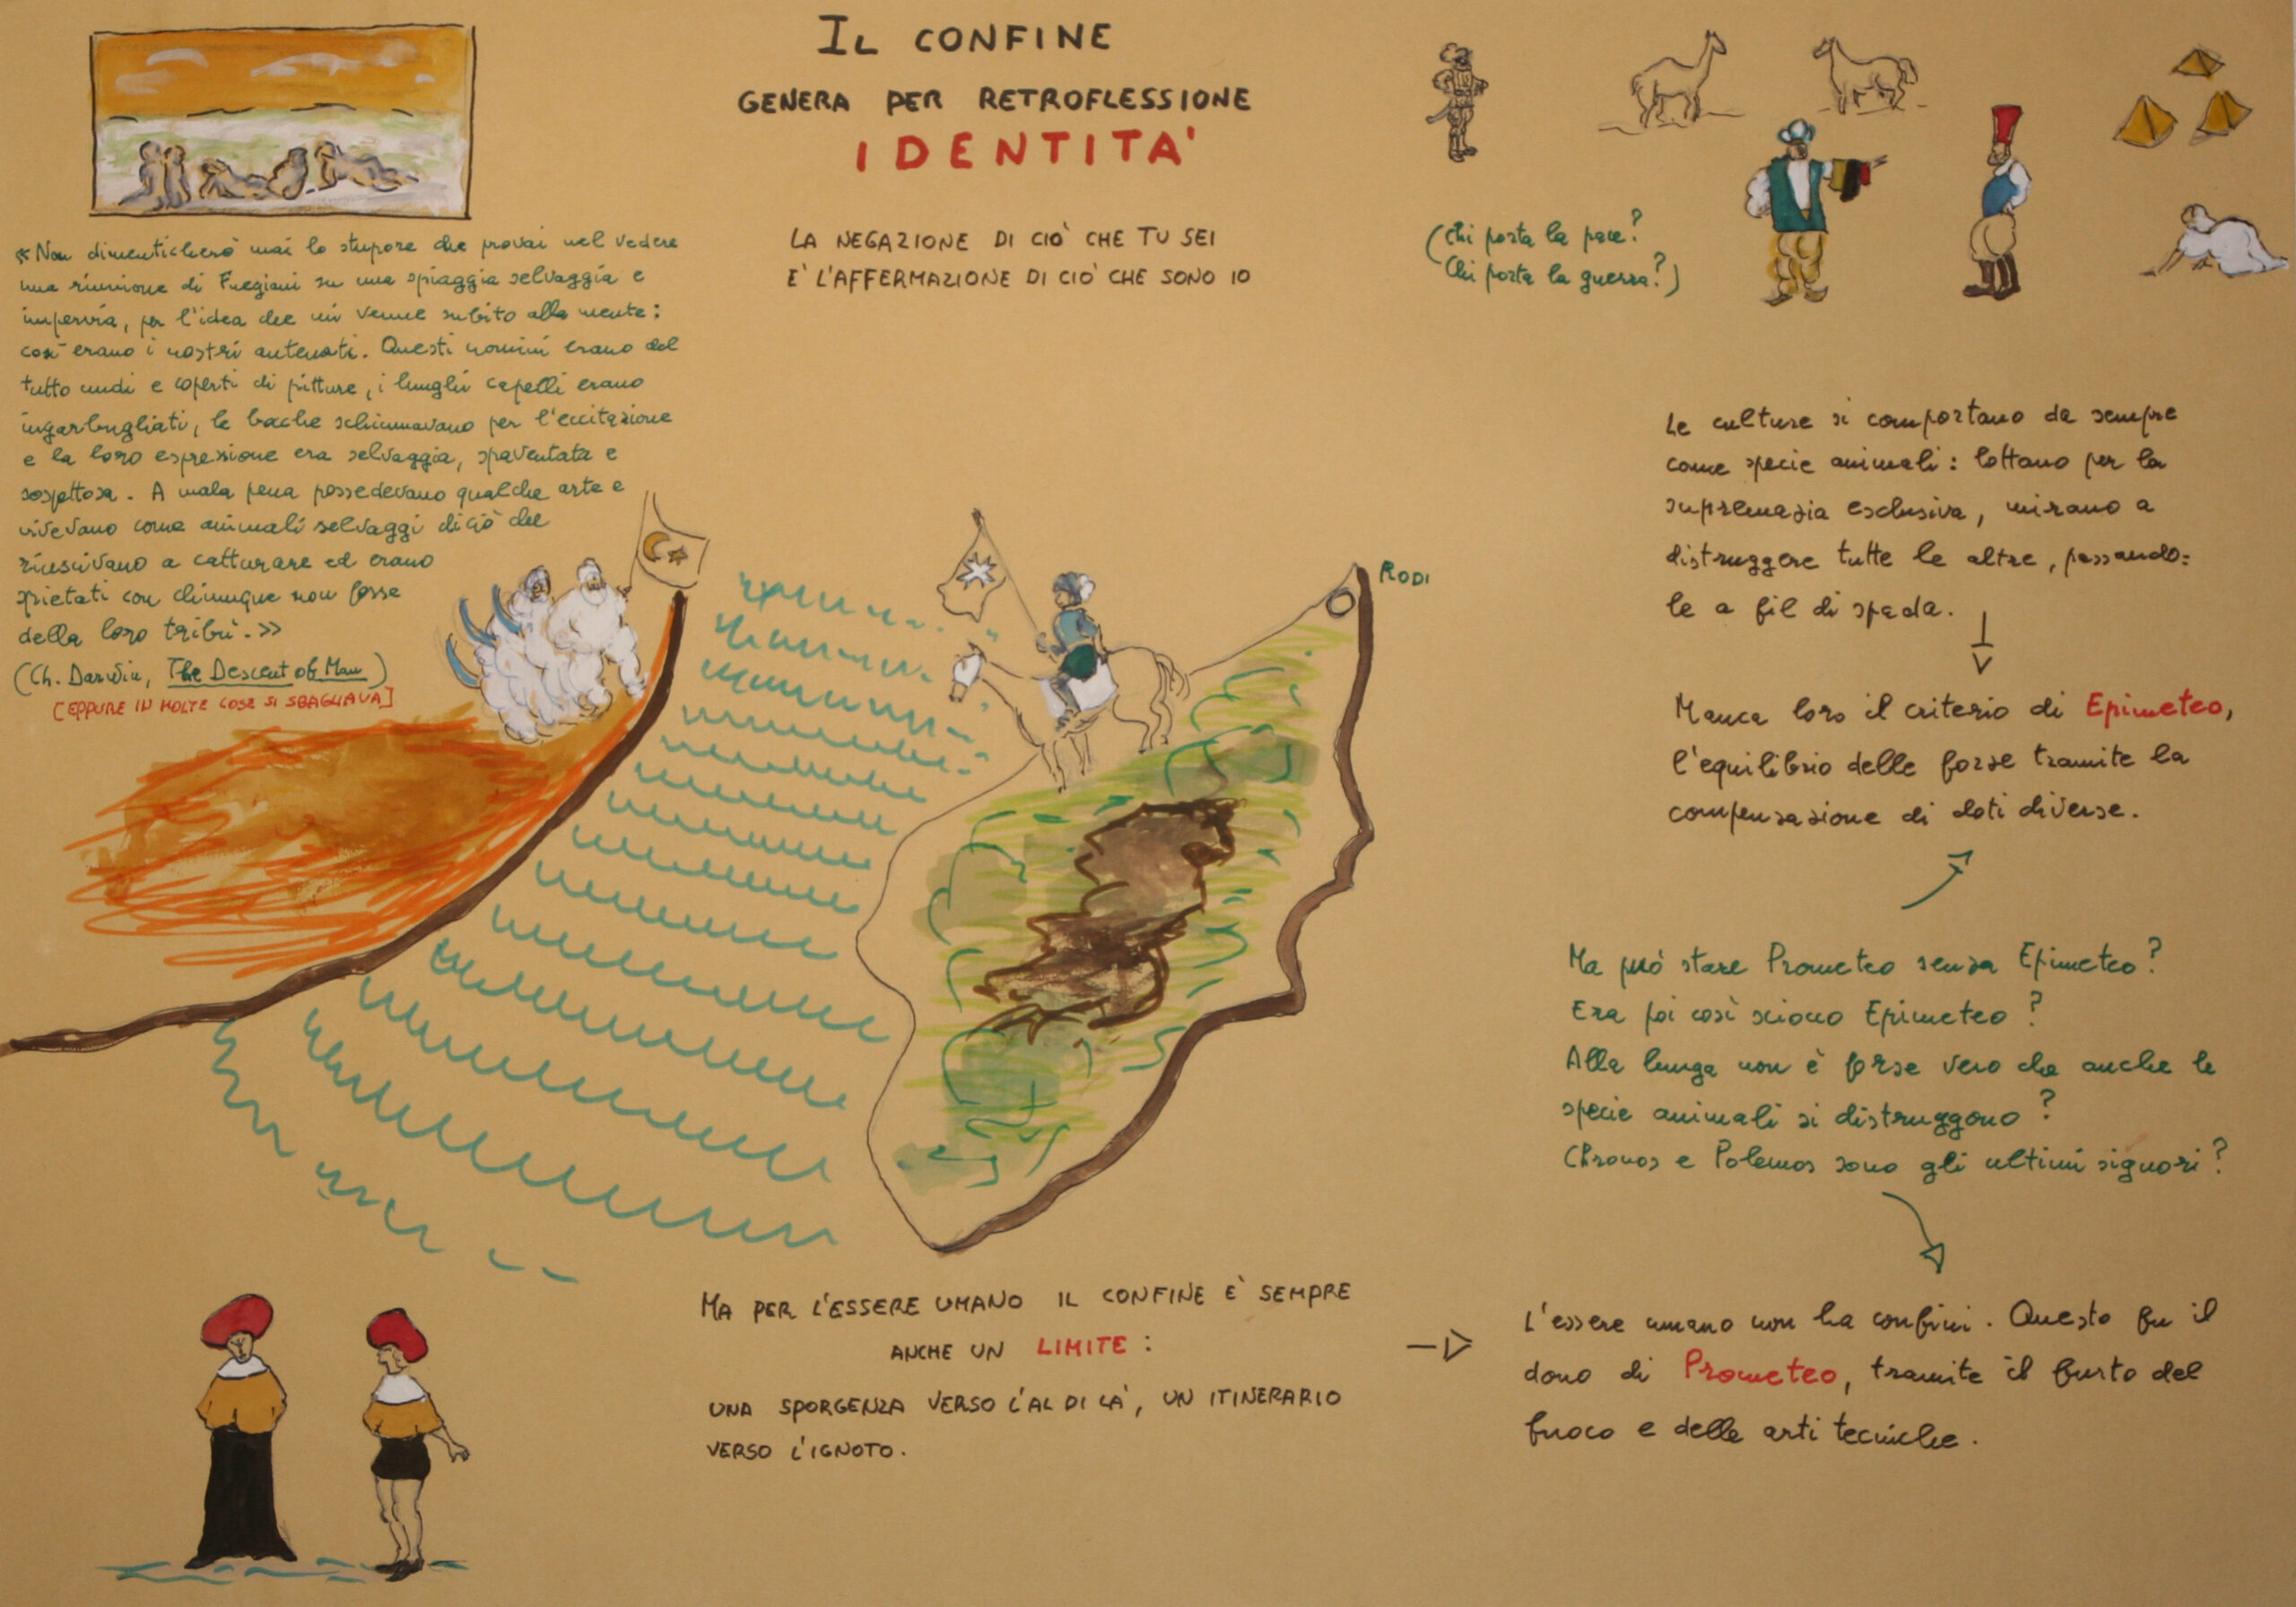 IL CONFINE
GENERA PER RETROFLESSIONE
IDENTITA'
LA NEGAZIONE DI CIÒ CHE TU SEI
E' L'AFFERMAZIONE DI CIÒ CHE SONO IO
«Non dimenticherò mai lo stupore che provai nel vedere
una riunione di Fuegiani su una spiaggia selvaggia e
impervia, per l'idea che mi venne subito alla mente:
così erano i nostri antenati. Questi uomini erano del
tutto nudi e coperti di pitture, i lunghi capelli erano
ingarbugliati, le bocche schiumavano per l'eccitazione
e la loro espressione era selvaggia, spaventata e
sospettosa. A mala pena possedevano qualche arte e
vivevano come animali selvaggi di ciò che
riuscivano a catturare ed erano
spietati con chiunque non fosse
della loro tribù.»
(Ch. Darwin, The Descent of Man)
[EPPURE IN MOLTE COSE SI SBAGLIAVA]
(Chi porta la pace?
Chi porta la guerra?)
RODI
Le culture si comportano da sempre
come specie animali: lottano per la
supremazia esclusiva, mirano a
distruggere tutte le altre, passando=
le a fil di spada.
Manca loro il criterio di Epimeteo,
l'equilibrio delle forze tramite la
compensazione di doti diverse.
Ma può stare Prometeo senza Epimeteo?
Era poi così sciocco Epimeteo?
Alla lunga non è forse vero che anche le
specie animali si distruggono?
Chronos e Polemos sono gli ultimi signori?
MA PER L'ESSERE UMANO IL CONFINE È SEMPRE
ANCHE UN LIMITE:
UNA SPORGENZA VERSO L'AL DI LA', UN ITINERARIO
VERSO L'IGNOTO.
L'essere umano non ha confini. Questo fu il
dono di Prometeo, tramite il furto del
fuoco e delle arti tecniche.